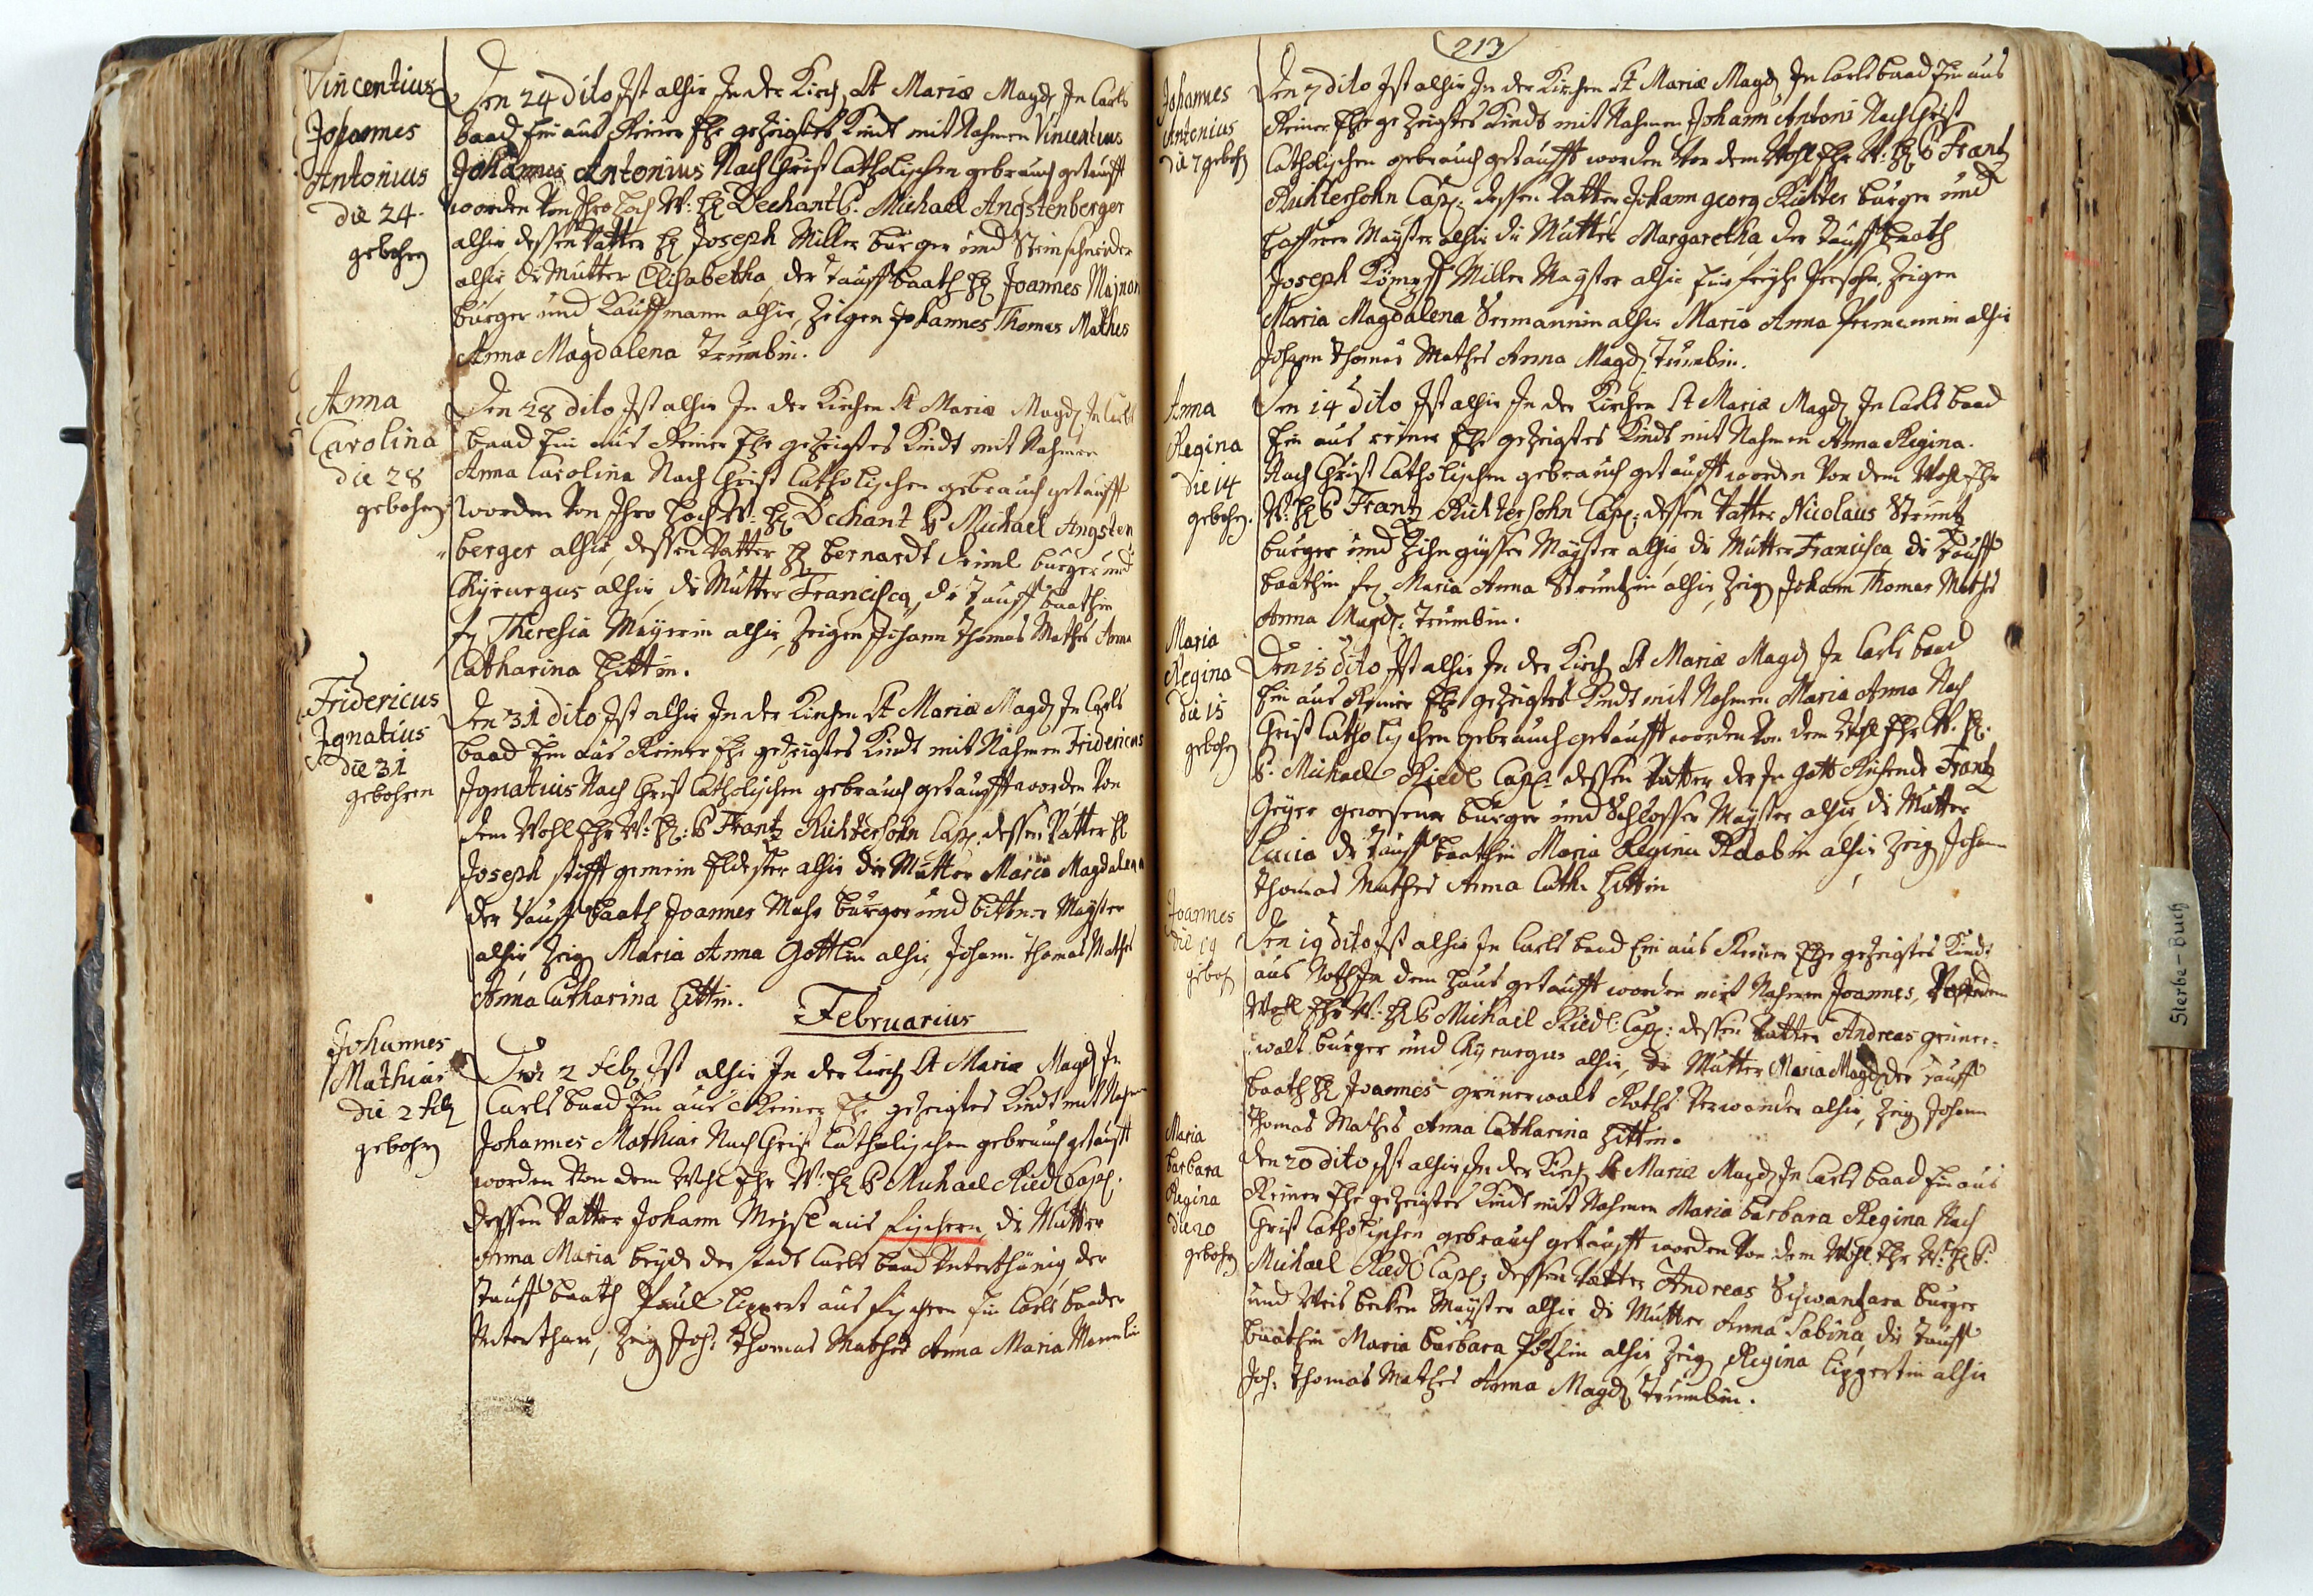 Vincentius
Johannes
Antonius
die 24.
gebohren
Den 24 dito Ist alhir In der Kirch St Mariæ Magd In Carls
baad Ein aus Reiner Ehe gezeigtes Kindt mit Nahmen Vincentius
Johannes Antonius Nach Christ Catholischen gebrauch getaufft
worden Von Ihro Hoch W: H Dechant P. Michael Angstenberger
alhir, dessen Vatter H Joseph Miller burger und Steinschneider
alhir, die Mutter Elisabetha, der Tauff baath H Joannes Majnon
burger und Kauffmann alhir, Zeigen Johannes Thomas Mathes
Anna Magdalena Trumbin.
Anna
Carolina
die 28
gebohren
Den 28 dito Ist alhir In der Kirchen St Mariæ Magd In Carls
baad Ein aus Reiner Ehe gezeigtes Kindt mit Nahmen
Anna Carolina Nach Christ Catholischen gebrauch getaufft
worden Von Ihro Hoch W: H Dechant P Michael Angsten
berger alhir, dessen Vatter H bernardt burger und
Chyrurgus alhir, die Mutter Francisca, die Tauff baathin
fr Theresia Mayerin alhir, Zeigen Johann Thomas Mathes Anna
Catharina Hittin.
Fridericus
Ignatius
die 31
gebohren
Den 31 dito Ist alhir In der Kirchen St Mariæ Magd In Carls
baad Ein aus Reiner Ehe gezeigtes Kindt mit Nahmen Fridericus
Ignatius Nach Christ Catholischen gebrauch getaufft worden Von
dem Wohl Ehr W: H: P Frantz Richtersohn Cap: dessen Vatter H
Joseph stifft gemein Eldester alhir die Mutter Maria Magdalena
der Tauff baath Joannes Muhr burger und bittner Mayster
alhir, Zeig Maria Anna Gottlin alhir, Johann Thomas Mathes
Anna Catharina Hittin.
Februarius
Johannes
Mathias
die 2 feb
gebohren
Den 2 Feb Ist alhir In der Kirch St Mariæ Magd In
Carls baad Ein aus Reiner Ehe gezeigtes Kindt mit Nahmen
Johannes Mathias Nach Christ Catholischen gebrauch getaufft
worden Von dem Wohl Ehr W: H P Michael Riedl Cap:
dessen Vatter Johann Meysl aus fischern, die Mutter
Anna Maria beyde der stadt Carls baad Unterthänig, der
Tauff baath Paul Lippert aus fischern Ein Carls baader
Unterthan, Zeig Joh: Thomas Mathes Anna Maria
213
Johannes
Antonius
die 7 gebohr
Den 7 dito Ist alhir In der Kirchen St Mariæ Magd In Carls baad Ein aus
Reiner Ehe gezeigtes Kindt mit Nahmen Johann Antoni Nach Christ
Catholischen gebrauch getaufft worden Von dem Wohl Ehr W: H P Frantz
Richtersohn Cap: dessen Vatter Johann georg Richter burger und
Haffner Mayster alhir die Mutter Margaretha, der Tauff baath
Joseph Miller Mayster alhir Zeigen
Maria Magdalena alhir Maria Anna alhir
Johann Thomas Mathes Anna Magd Trumbin.
Anna
Regina
die 14
gebohren.
Den 14 dito Ist alhir In der Kirchen St Mariæ Magd In Carls baad
Ein aus reiner Ehe gezeigtes Kindt mit Nahmen Anna Regina.
Nach Christ Catholischen gebrauch getaufft worden Von dem Wohl Ehr
W: H P Frantz Richtersohn Cap: dessen Vatter Nicolaus Struntz
burger und Zihn gisser Mayster alhir, die Mutter Francisca die Tauff
baathin fr Maria Anna Struntzin alhir, Zeig Johann Thomas Mathes
Anna Magd: Trumbin.
Maria
Regina
die 15
gebohren
Den 15 dito Ist alhir In der Kirch St Mariæ Magd In Carls baad
Ein aus Reiner Ehe gezeigtes Kindt mit Nahmen Maria Anna Nach
Christ Catholischen gebrauch getaufft worden Von dem Wohl Ehr W: H:
P. Michael Riedl Cap: dessen Vatter der In Gott Ruhende Frantz
Geyer gewesener burger und Schlosser Mayster alhir, die Mutter
Lucia die Tauff baathin Maria Regina Raabin alhir, Zeig Johann
Thomas Mathes Anna Cath: Hittin
Joannes
die 19
geboh
Den 19 dito Ist alhir In Carls baad Ein aus Reiner Ehe gezeigtes Kindt
aus Noth In dem Haus getaufft worden mit Nahmen Joannes, Von dem
Wohl Ehr W: H P Michael Riedl: Cap: dessen Vatter Andreas grüner-
walt burger und Chyrurgus alhir, die Mutter Maria Magd der Tauff
baath H Joannes grünerwalt Raths Verwander alhir, Zeig Johann
Thomas Mathes Anna Catharina Hittin.
Maria
barbara
Regina
die 20
gebohren
Den 20 dito Ist alhir In der Kirch St Mariæ Magd In Carls baad Ein aus
Reiner Ehe gezeigtes Kindt mit Nahmen Maria barbara Regina Nach
Christ Catholischen gebrauch getaufft worden Von dem Wohl Ehr W: H P.
Michael Riedl Cap: dessen Vatter Andreas Schwantzara burger
und Weis becken Mayster alhir die Mutter Anna Sabina, die Tauff
baathin Maria barbara alhir, Zeig Regina Lippertin alhir
Joh: Thomas Mathes Anna Magd Trumbin.
Sterbe-Buch